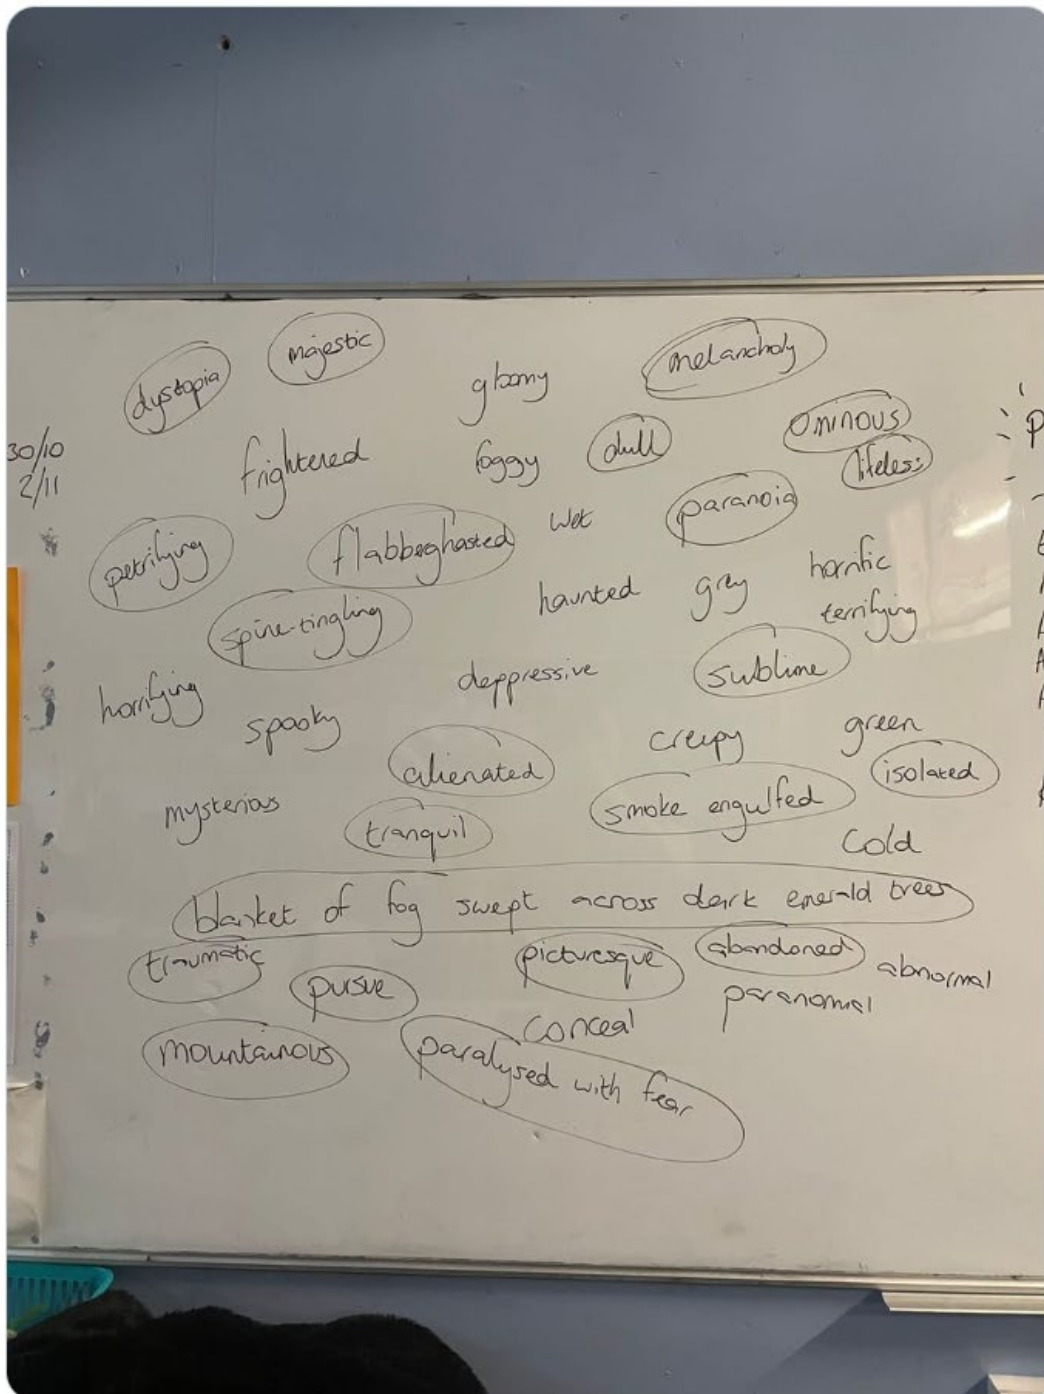 dystopia
majestic
gloomy
melancholy
30/10
2/11
frightened
foggy
dull
ominous
lifeless
petrifying
flabberghasted
wet
paranoia
spine-tingling
haunted
grey
horrific
terrifying
horrifying
spooky
deppressive
sublime
creepy
green
alienated
isolated
mysterious
tranquil
smoke engulfed
cold
blanket of fog swept across dark emerald trees
traumatic
picturesque
abandoned
abnormal
pursue
paranormal
conceal
mountainous
paralysed with fear